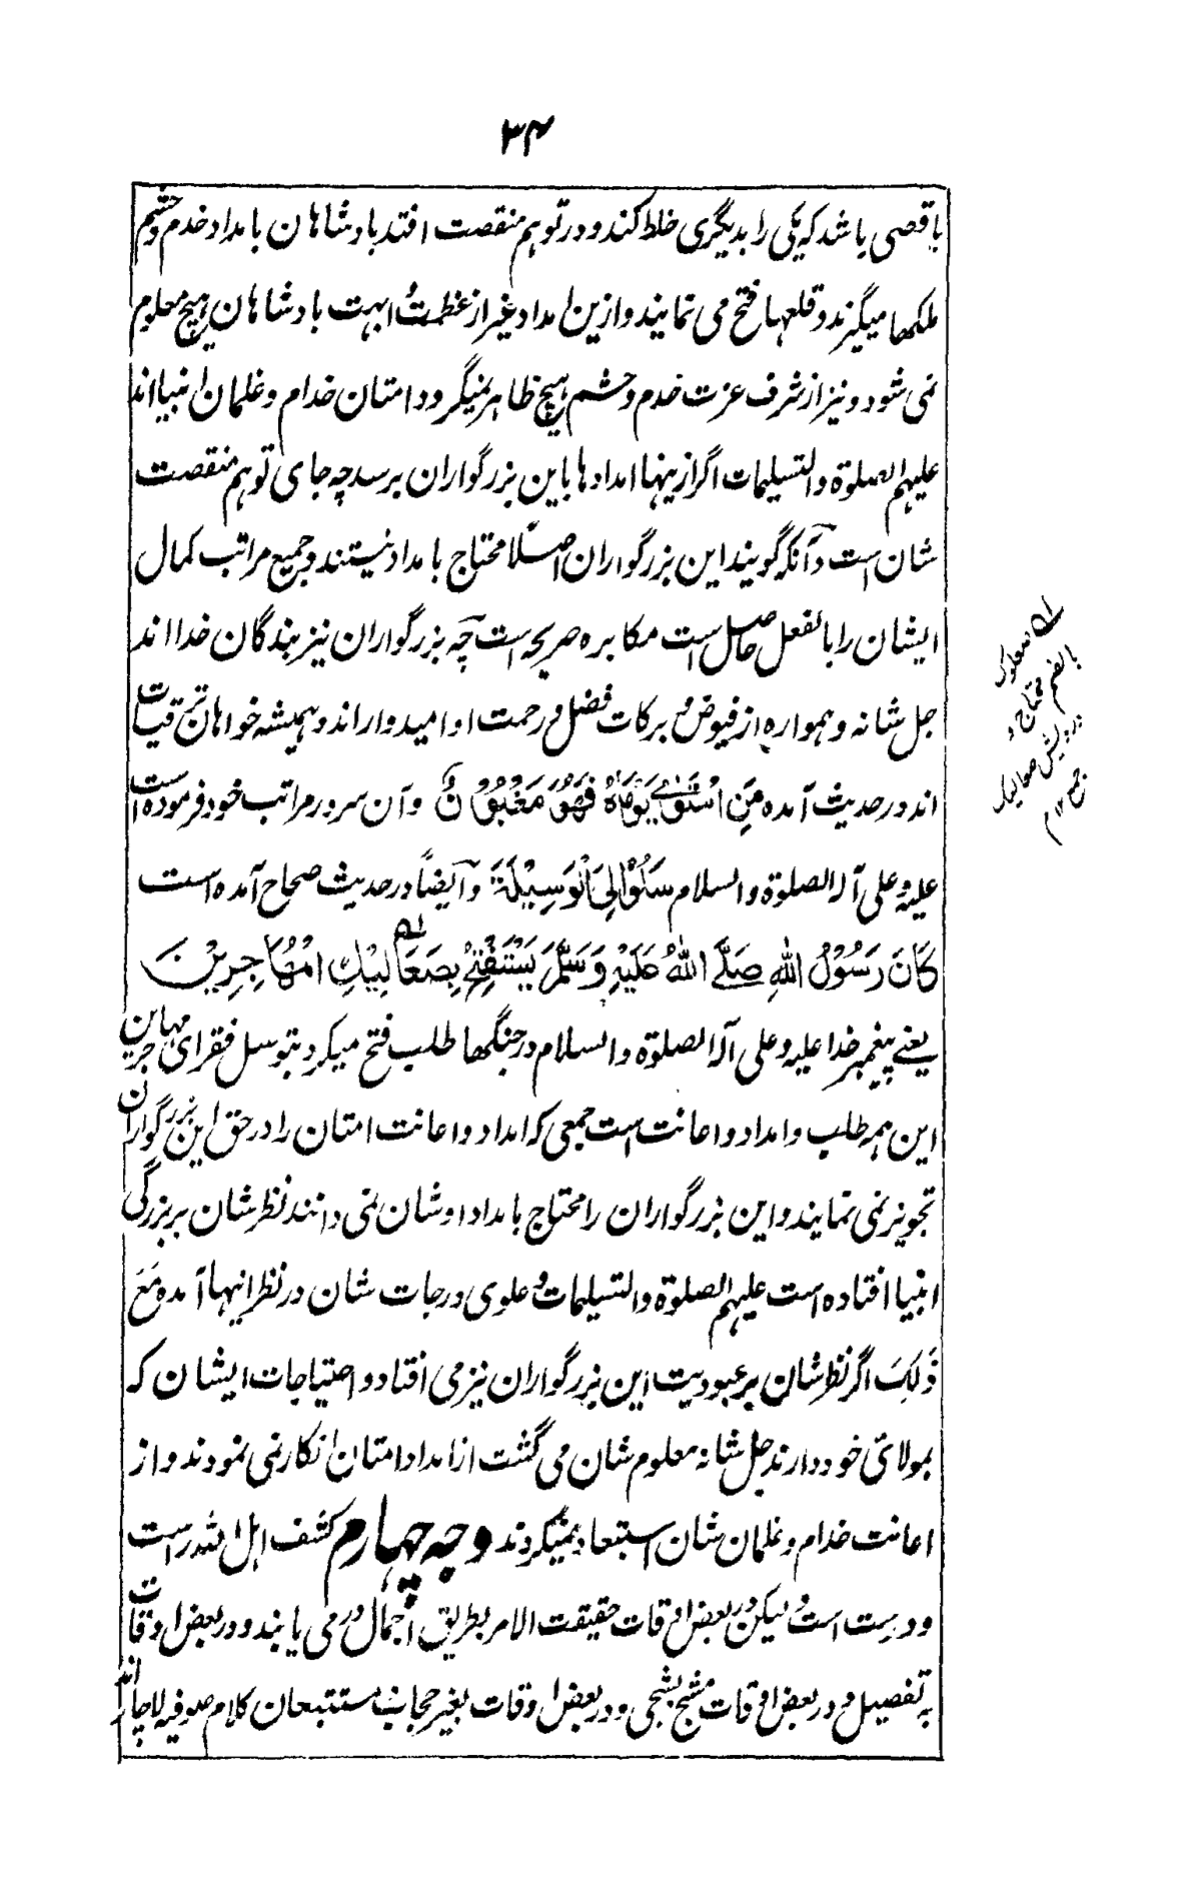 ۳۴
باقصی باشد که یکی را بدیگری خلط کند و در توهم منقصت افتد بادشاهان بامداد خدم و حشم
ملکها میگیرند و قلعها فتح می نمایند و ازین امداد غیر از عظمت و ابهت بادشاهان هیچ معلوم
نمی شود و نیز از شرف عزت خدم و حشم هیچ ظاهر نمیگردد امتان خدام و غلمان انبیا اند
علیهم الصلوة والتسلیمات اگر ازینها امدادها باین بزرگواران برسد چه جای توهم منقصت
شان است و آنکه گویند این بزرگواران اصلا محتاج بامداد نیستند و جمیع مراتب کمال
ایشان را بالفعل حاصل است مکابره صریحه است چه بزرگواران نیز بندگان خدا اند
جل شانه و همواره از فیوض و برکات فضل و رحمت او امیدوار اند و همیشه خواهان ترقیات
اند در حدیث آمده مَنِ اسْتَوٰی یَوْمَاهُ فَهُوَ مَغْبُوْنٌ و آن سرور مراتب خود فرموده است
علیه و علی آله الصلوة والسلام سَلُوْا لِیَ الْوَسِیْلَةَ و ایضاً در حدیث صحاح آمده است
کَانَ رَسُوْلُ اللهِ صَلَّی اللهُ عَلَیْهِ وَسَلَّمَ یَسْتَفْتِحُ بِصَعَالِیْکِ الْمُهَاجِرِیْنَ
یعنے پیغمبر خدا علیه و علی آله الصلوة والسلام در جنگها طلب فتح میکرد بتوسل فقرای مهاجرین
این همه طلب و امداد و اعانت است جمعی که امداد و اعانت امتان را در حق این بزرگواران
تجویز نمی نمایند و این بزرگواران را محتاج بامداد اوشان نمی دانند نظر شان بر بزرگی
انبیا افتاده است علیهم الصلوة والتسلیمات و علوی درجات شان در نظر اینها آمده مَعَ
ذٰلِکَ اگر نظر شان بر عبودیت این بزرگواران نیز می افتاد و احتیاجات ایشان که
بمولائی خود دارند جل شانه معلوم شان می گشت از امداد امتان انکار نمی نمودند و از
اعانت خدام و غلمان شان استبعاد نمیکردند وجه چهارم کشف اهل الله راست
و درست است و لیکن در بعض اوقات حقیقت الامر بطریق اجمال در می یابند و در بعض اوقات
به تفصیل و در بعض اوقات مشج بشجی و در بعض اوقات بغیر حجاب مستتبعان کلام صوفیه لاچار اند
له صعلوک
بالضم محتاج و
درویش صعالیک
جمع ۱۲ م